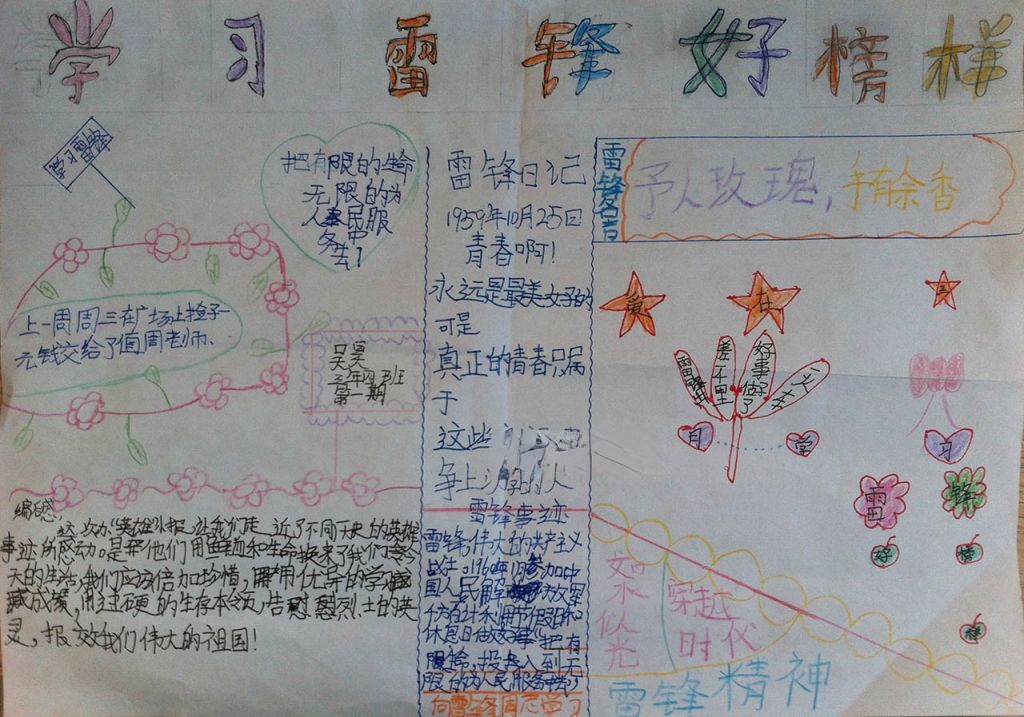 学习雷锋好榜样
学习雷锋
把有限的生命
无限的为
人民服
务中
去！
上一周周三在广场上捡了一
元钱交给了值周老师、
吴昊
三年四班
第一期
编后感：
这次办"英雄"小报，让我们走近了不同历史的英雄
事迹所感动。是他们用血和生命换来了我们今
天的生活，我们应该倍加珍惜，用优异的学
成绩，用过硬的生存本领，告慰烈士的英
灵，报效我们伟大的祖国！
雷锋日记
1959年10月25日
青春啊！
永远是最美好的
可是
真正的青春只属
于
这些
争上游的人
雷锋事迹
雷锋，伟大的共产主义
战士。1960年1月参加中
国人民解放军
休息日做好事
把有
限生命，投入到无
限的为人民服务中去
向雷锋同志学习
雷锋名言
予人玫瑰，手有余香
爱 在 三
月
雷锋
差千里
好事做了
一火车
自 堂
习
雷 锋
好 榜
样
如
水
似
光
穿越
时代
雷锋精神